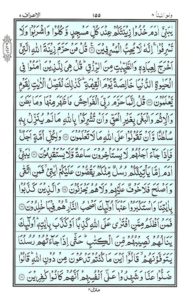 ولو اننا ٨ ١٥٥ الاعراف ٧
يٰبَنِيْٓ اٰدَمَ خُذُوْا زِيْنَتَكُمْ عِنْدَ كُلِّ مَسْجِدٍ وَّكُلُوْا وَاشْرَبُوْا وَلَا
تُسْرِفُوْا ۚ اِنَّهٗ لَا يُحِبُّ الْمُسْرِفِيْنَ ۝ قُلْ مَنْ حَرَّمَ زِيْنَةَ اللّٰهِ الَّتِيْٓ
اَخْرَجَ لِعِبَادِهٖ وَالطَّيِّبٰتِ مِنَ الرِّزْقِ ؕ قُلْ هِيَ لِلَّذِيْنَ اٰمَنُوْا فِي
الْحَيٰوةِ الدُّنْيَا خَالِصَةً يَّوْمَ الْقِيٰمَةِ ؕ كَذٰلِكَ نُفَصِّلُ الْاٰيٰتِ لِقَوْمٍ
يَّعْلَمُوْنَ ۝ قُلْ اِنَّمَا حَرَّمَ رَبِّيَ الْفَوَاحِشَ مَا ظَهَرَ مِنْهَا وَمَا بَطَنَ
وَالْاِثْمَ وَالْبَغْيَ بِغَيْرِ الْحَقِّ وَاَنْ تُشْرِكُوْا بِاللّٰهِ مَا لَمْ يُنَزِّلْ بِهٖ
سُلْطٰنًا وَّاَنْ تَقُوْلُوْا عَلَى اللّٰهِ مَا لَا تَعْلَمُوْنَ ۝ وَلِكُلِّ اُمَّةٍ اَجَلٌ ۚ
فَاِذَا جَآءَ اَجَلُهُمْ لَا يَسْتَاْخِرُوْنَ سَاعَةً وَّلَا يَسْتَقْدِمُوْنَ ۝ يٰبَنِيْٓ
اٰدَمَ اِمَّا يَاْتِيَنَّكُمْ رُسُلٌ مِّنْكُمْ يَقُصُّوْنَ عَلَيْكُمْ اٰيٰتِيْ ۙ فَمَنِ اتَّقٰى
وَاَصْلَحَ فَلَا خَوْفٌ عَلَيْهِمْ وَلَا هُمْ يَحْزَنُوْنَ ۝ وَالَّذِيْنَ كَذَّبُوْا
بِاٰيٰتِنَا وَاسْتَكْبَرُوْا عَنْهَآ اُولٰٓئِكَ اَصْحٰبُ النَّارِ ۚ هُمْ فِيْهَا خٰلِدُوْنَ ۝
فَمَنْ اَظْلَمُ مِمَّنِ افْتَرٰى عَلَى اللّٰهِ كَذِبًا اَوْ كَذَّبَ بِاٰيٰتِهٖ ؕ اُولٰٓئِكَ
يَنَالُهُمْ نَصِيْبُهُمْ مِّنَ الْكِتٰبِ ؕ حَتّٰىٓ اِذَا جَآءَتْهُمْ رُسُلُنَا
يَتَوَفَّوْنَهُمْ ۙ قَالُوْٓا اَيْنَ مَا كُنْتُمْ تَدْعُوْنَ مِنْ دُوْنِ اللّٰهِ ؕ قَالُوْا
ضَلُّوْا عَنَّا وَشَهِدُوْا عَلٰٓى اَنْفُسِهِمْ اَنَّهُمْ كَانُوْا كٰفِرِيْنَ ۝
منزل ٢